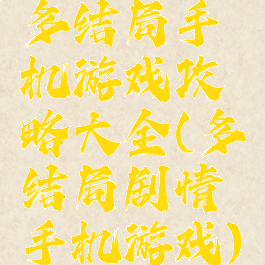 多结局手
机游戏攻
略大全(多
结局剧情
手机游戏)